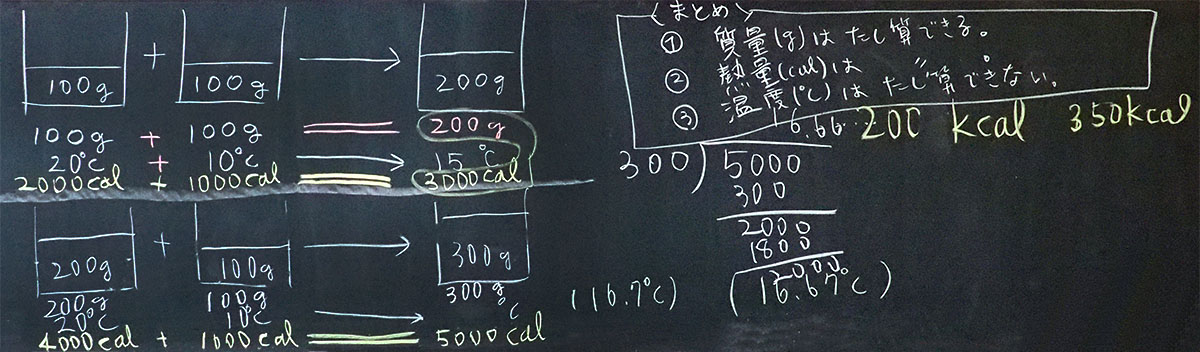 100g + 100g → 200g
100g + 100g 200g
20℃ + 10℃ → 15℃
2000cal + 1000cal 3000cal
200g + 100g → 300g
200g 100g 300g
20℃ 10℃ → ℃
4000cal + 1000cal 5000cal
(16.7℃)
〈まとめ〉
① 質量(g)は たし算できる。
② 熱量(cal)は 〃 。
③ 温度(℃)は たし算できない。
200 kcal 350kcal
16.66...
300)5000
300
2000
1800
2000
(16.67℃)